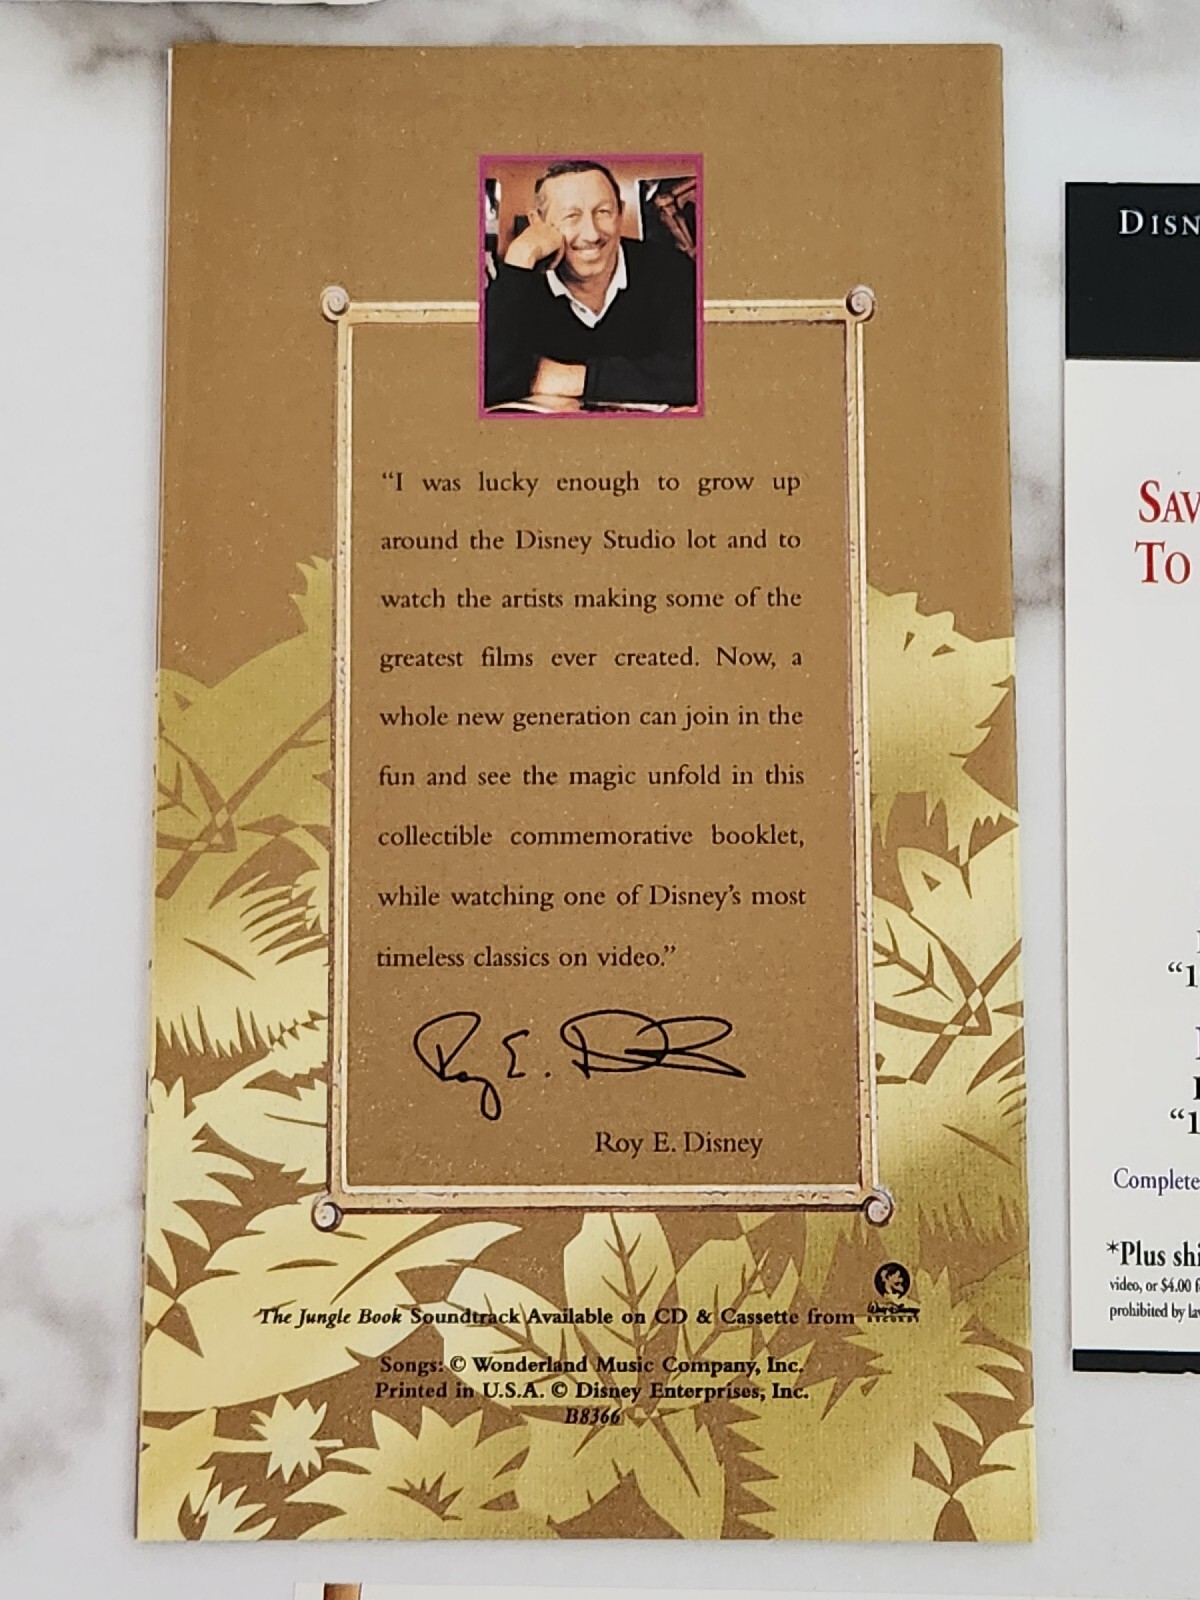 “I was lucky enough to grow up
around the Disney Studio lot and to
watch the artists making some of the
greatest films ever created. Now, a
whole new generation can join in the
fun and see the magic unfold in this
collectible commemorative booklet,
while watching one of Disney’s most
timeless classics on video.”
Roy E. Disney
Roy E. Disney
The Jungle Book Soundtrack Available on CD & Cassette from
Walt Disney
RECORDS
Songs: © Wonderland Music Company, Inc.
Printed in U.S.A. © Disney Enterprises, Inc.
B8366
DISN
SAV
TO
“1
“1
Complete
*Plus shi
video, or $4.00 f
prohibited by la